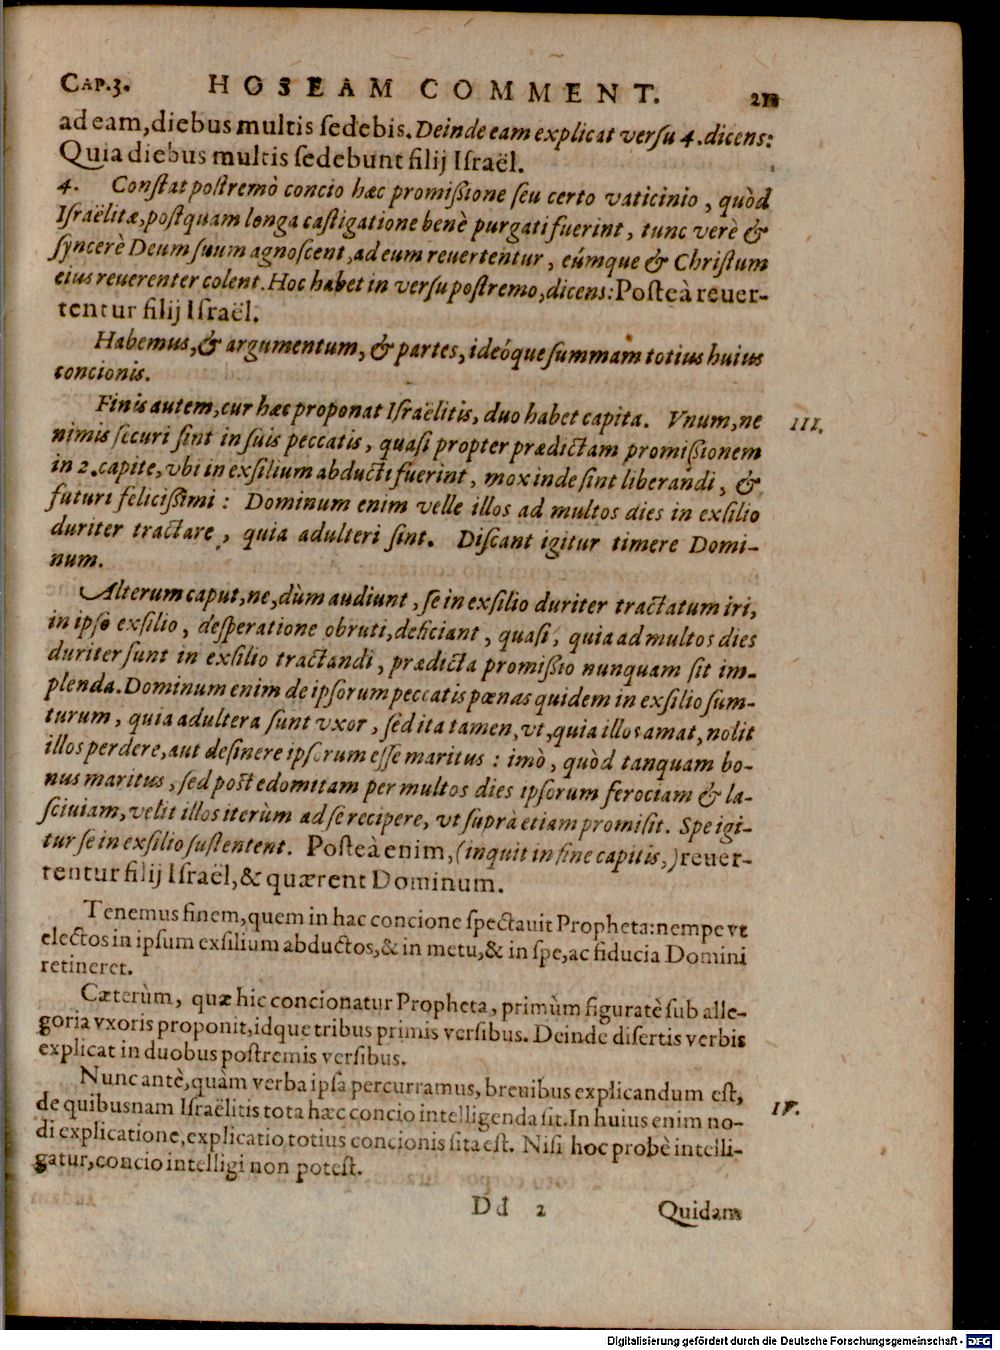 CAP.3. HOSEAM COMMENT. 211
ad eam, diebus multis ſedebis. Deinde eam explicat verſu 4. dicens:
Quia diebus multis ſedebunt filij Iſraël.
4. Conſtat poſtremò concio hæc promiſsione ſeu certo vaticinio, quòd
Iſraëlitæ, poſtquam longa caſtigatione benè purgati fuerint, tunc verè &
ſyncerè Deum ſuum agnoſcent, ad eum reuertentur, eúmque & Chriſtum
eius reuerenter colent. Hoc habet in verſu poſtremo, dicens: Poſteà reuer-
tentur filij Iſraël.
Habemus, & argumentum, & partes, ideóque ſummam totius huius
concionis.
Finis autem, cur hæc proponat Iſraëlitis, duo habet capita. Vnum, ne III.
nimis ſecuri ſint in ſuis peccatis, quaſi propter prædictam promiſsionem
in 2. capite, vbi in exſilium abducti fuerint, mox inde ſint liberandi, &
futuri feliciſsimi: Dominum enim velle illos ad multos dies in exſilio
duriter tractare, quia adulteri ſint. Diſcant igitur timere Domi-
num.
Alterum caput, ne, dùm audiunt, ſe in exſilio duriter tractatum iri,
in ipſo exſilio, deſperatione obruti, deficiant, quaſi, quia ad multos dies
duriter ſunt in exſilio tractandi, prædicta promiſsio nunquam ſit im-
plenda. Dominum enim de ipſorum peccatis pœnas quidem in exſilio ſum-
turum, quia adultera ſunt vxor, ſed ita tamen, vt, quia illos amat, nolit
illos perdere, aut deſinere ipſorum eſſe maritus: imò, quòd tanquam bo-
nus maritus, ſed poſt edomitam per multos dies ipſorum ferociam & la-
ſciuiam, velit illos iterùm ad ſe recipere, vt ſuprà etiam promiſit. Spe igi-
tur ſe in exſilio ſuſtentent. Poſteà enim, (inquit in fine capitis,) reuer-
tentur filij Iſraël, & quærent Dominum.
Tenemus finem, quem in hac concione ſpectauit Propheta: nempe vt
electos in ipſum exſilium abductos, & in metu, & in ſpe, ac fiducia Domini
retineret.
Cæterùm, quæ hic concionatur Propheta, primùm figuratè ſub alle-
goria vxoris proponit, idque tribus primis verſibus. Deinde diſertis verbis
explicat in duobus poſtremis verſibus.
Nunc antè, quàm verba ipſa percurramus, breuibus explicandum eſt,
de quibusnam Iſraëlitis tota hæc concio intelligenda ſit. In huius enim no- IV.
di explicatione, explicatio totius concionis ſita eſt. Niſi hoc probè intelli-
gatur, concio intelligi non poteſt.
Dd 2 Quidam
Digitalisierung gefördert durch die Deutsche Forschungsgemeinschaft - DFG